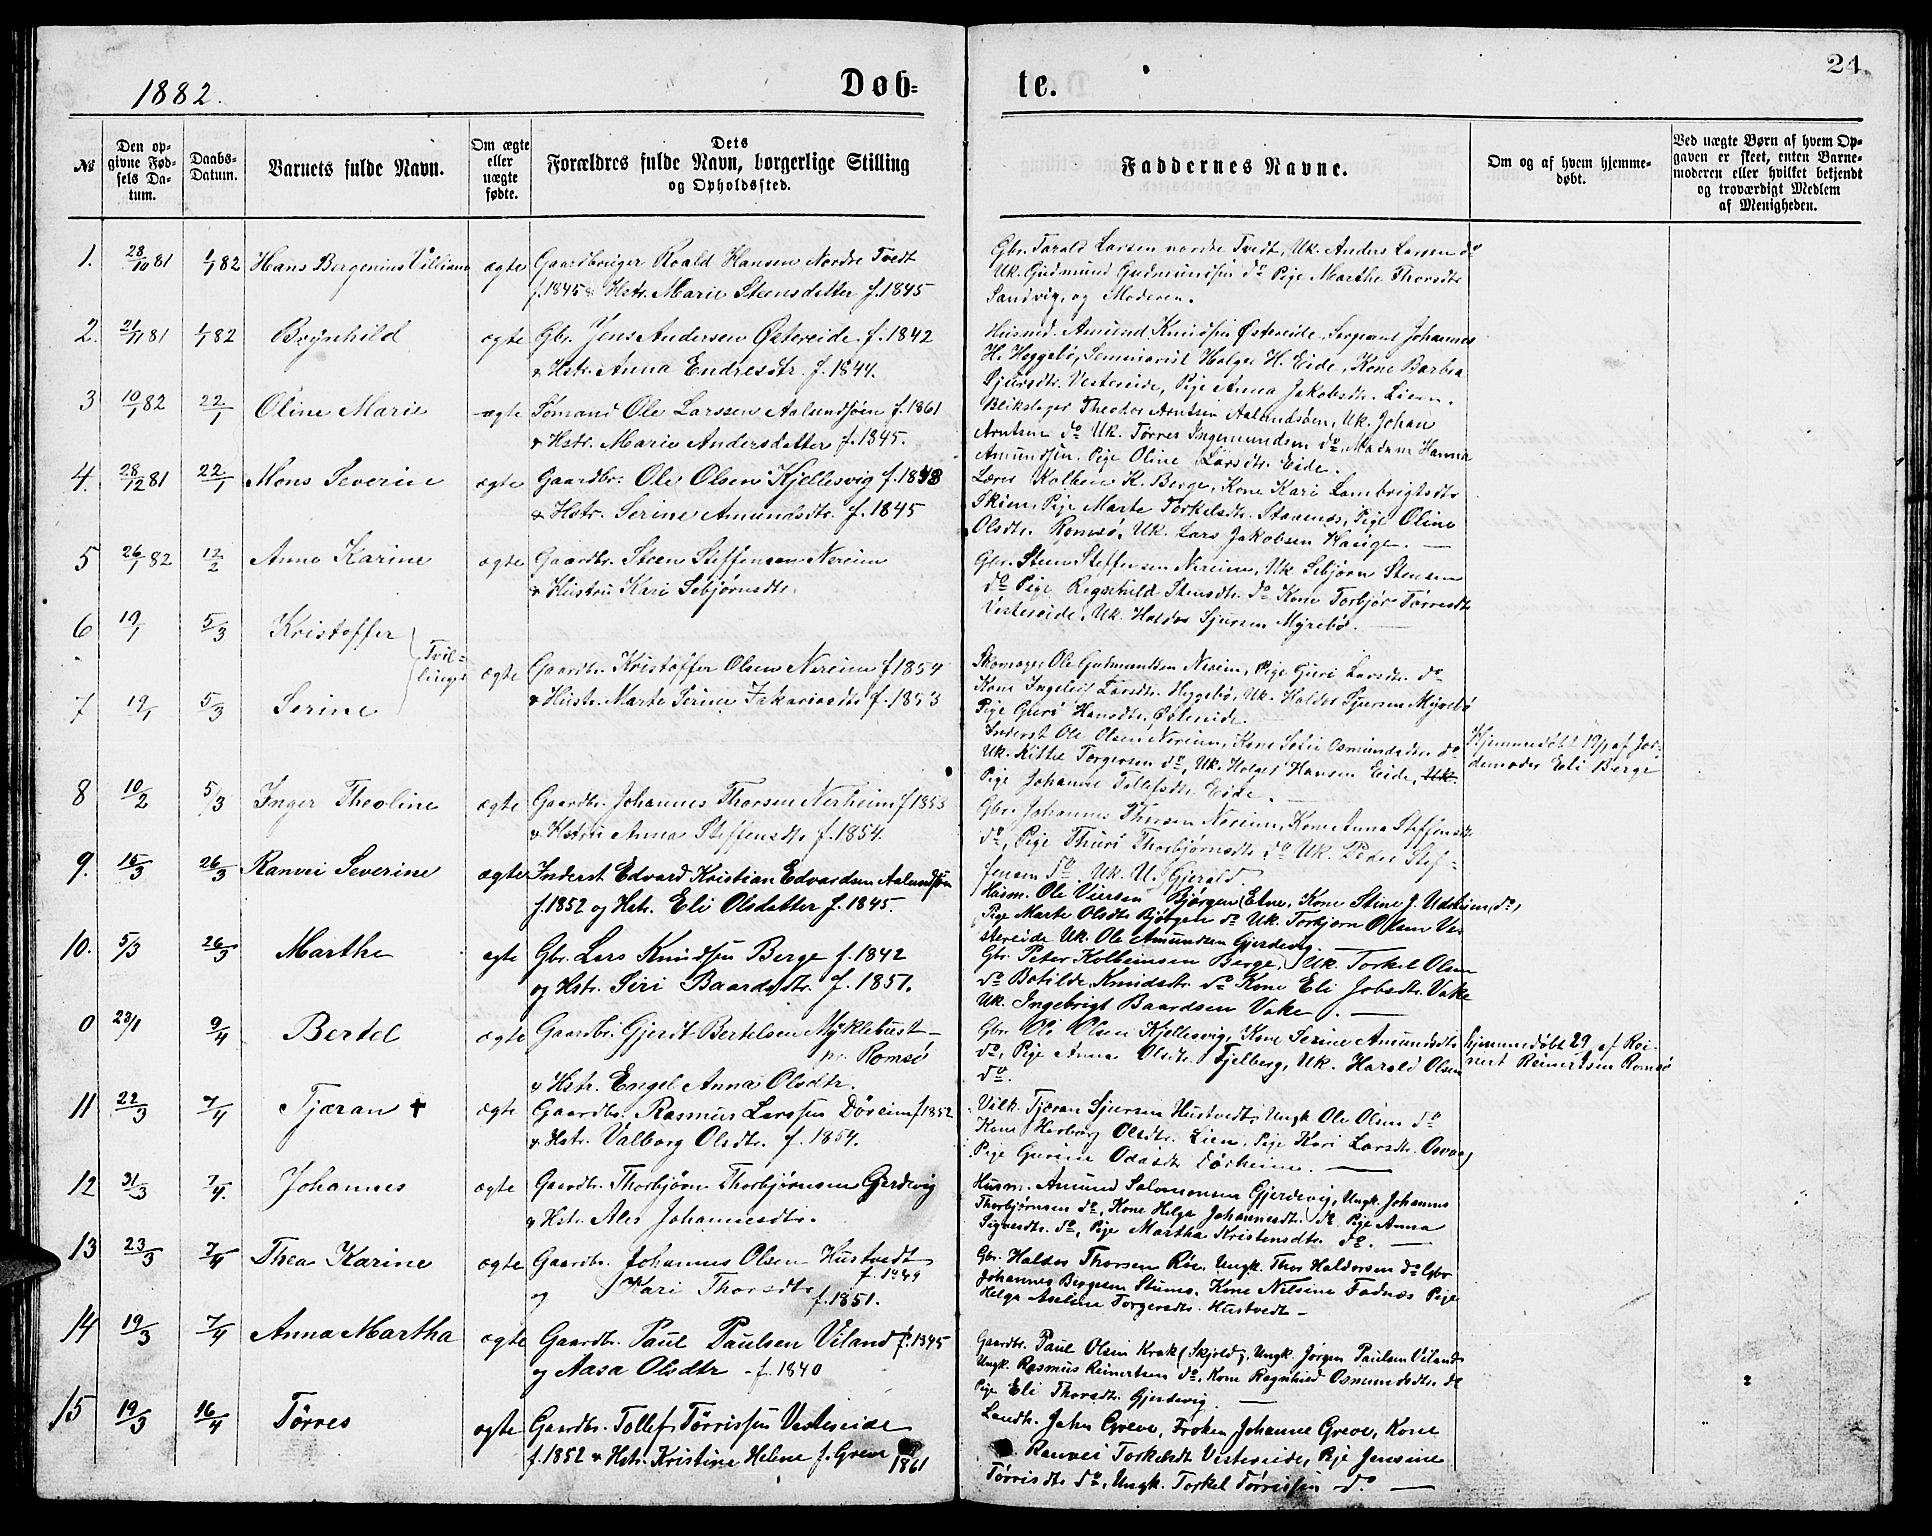 1882.
Døb-
te.
24
№
Den op-
givne Fød-
sels Da-
tum.
Daabs-
Datum.
Barnets fulde Navn.
Om ægte
eller
uægte
fødte.
Dets
Forældres fulde Navn, borgerlige Stilling
og Opholdssted.
Faddernes Navne.
Om og af hvem hjemme-
døbt.
Ved uægte Børn af hvem Op-
gaven er skeet, enten Barne-
moderen eller hvilket bekjendt
og troværdigt Medlem
af Menigheden.
1. 28/10 81 1/1 82 Hans Bergenius Villiam ægte Gaardbruger Roald Hansen Nordre Tvedt
f. 1845 & Hstr. Marie Steensdatter f. 1845
Gbr. Tarald Larsen nordre Tvedt, Uk. Anders Larsen do
Uk. Gudmund Gudmundsen do Pige Marthe Thorsdtr
Sandvig, og Moderen.
2. 21/11 81 1/1 82 Brynhild ægte Gbr. Jens Andersen Østereide f. 1842
& Hstr. Anna Endresdtr. f. 1844.
Husmd. Amund Knudsen Østereide, Sergeant Johannes
H. Heggebø, Seminarist Holger H. Eide, Kone Barbra
Sjursdtr. Vestereide, Pige Anna Jakobsdtr. Lien.
3 10/1 82 22/1 Oline Marie ægte Sømand Ole Larssen Aalundsøen f. 1861
& Hstr. Marie Andersdatter f. 1845.
Blikslager Theodor Arntsen Aalundsøen, Uk. Johan
Arntsen do Uk. Tørres Ingemundsen do, Madam Hanna
Amundsen, Pige Oline Larsdtr. Eide.
4. 28/12 81 22/1 Mons Severin ægte Gaardbr. Ole Olsen Kjellesvig f. 1848
& Hstr. Serine Amundsdtr. f. 1845
Lærer Kolben K. Berge, Kone Kari Lambrigtsdtr
Skien, Pige Marte Torkelsdtr. Stavenes, Pige Oline
Olsdtr. Romsø, Uk. Lars Jakobsen Hauge.
5 26/1 82 12/2 Anna Karine ægte Gaardbr. Steen Steffensen Nereim
& Hustru Kari Sebjørnsdtr.
Gbr. Steen Steffensen Nereim, Uk Sebjørn Stensen
do Pige Ragnhild Stensdtr. do Kone Torbjør Tørresdtr
Vestereide, Uk. Haldor Sjursen Myrebø.
6 19/1 5/3 Kristoffer
Tvil-
linger
ægte Gaardbr. Kristoffer Olsen Nereim f. 1854
7 19/1 5/3 Serine & Hustr. Marte Serine Zakariasdtr f. 1853
Skomager Ole Gudmundsen Nereim, Pige Guri Larsdtr. do
Kone Ingeleif Larsdtr. Heggebø, Uk. Haldor Sjursen Myrebø
Pige Guri Hansdtr. Østereide.
Inderst Ole Olsen Nereim, Kone Osmundsdtr. do
Uk. Kittil Torgersen do, Uk. Holger Hansen Eide, Uk.
Pige Johanne Tollefsdtr. Eide.
Hjemmedøbt 19/1 af Jor-
demoder Eli Berge
8 10/2 5/3 Inger Theoline ægte Gaardbr. Johannes Thorsen Nerheim f 1853
& Hstru Anna Steffensdtr. f. 1854.
Gbr. Johannes Thorsen Nereim, Kone Anna Steffensdtr
do, Pige Thuri Thorbjørnsdtr. do Uk. Peder Stef-
fensen do. Uk. U. Gjerald.
9. 15/3 26/3 Ranvei Severine ægte Inderst Edvard Kristian Edvardsen Aalundsøen
f. 1852 og Hstr. Eli Olsdatter f. 1845.
Husm. Ole Viersen Bjørgen (Etne, Kone Stine J. Udeheim, do,
Pige Marte Olsdtr Bjørgen do Uk. Torbjørn Olsen Ve-
stereide Uk. Ole Amundsen Gjerdevig.
10. 5/3 26/3 Marthe ægte Gbr. Lars Knudsen Berge f. 1842
og Hstr. Siri Baardsdtr. f. 1851.
Gbr. Peter Kolbeinsen Berge, Uk. Torkel Olsen
do Botilde Knudsdtr. do Kone Eli Jobsdtr. Vake
Uk. Ingebrigt Baardsen Vake.
0 23/1 9/4 Bertel ægte Gaardbr. Gjerdt Bertelsen Myklebust
Romsø
& Hstr. Engel Anna Olsdtr.
Gbr. Ole Olsen Kjellesvig, Kone Serine Amundsdtr
do, Pige Anna Olsdtr. Fjelberg, Uk. Harald Olsen
do.
hjemmedøbt af Rei-
nert Reinertsen Romsø
11 22/3 7/4 Tjæran + ægte Gaardbr. Rasmus Larssen Dørheim f 1852
& Hstr. Valborg Olsdtr. f. 1854.
Vilk. Tjæran Sjursen Hustvedt, Ungk. Ole Olsen do
Kone Herborg Olsdtr. Lien, Pige Kari Larsdtr. Osvaag
Pige Gurine Odasdtr Dørheim.
12 31/3 7/4. Johannes ægte Gaardbr. Thorbjørn Thorbjørnsen Gjerdevig
& Hstr. Ales Johannesdtr.
Husm. Amund Salomonsen Gjerdevig, Ungk. Johannes
Thorbjørnsen do, Kone Helga Johannesdtr. do Pige Anna
Signesdtr. do, Pige Martha Kristensdtr. do.
13 23/3 7/4 Thea Karine ægte Gaardbr. Johannes Olsen Hustvedt
f. 1849
og Kari Thorsdtr
f. 1851.
Gbr. Haldor Thorsen Røe, Ungk. Thor Haldorsen do Gbr
Johannes Bergesen Stumo, Kone Nilsine Fadnæs Pige
Helga Aseline Torgersdtr. Hustvedt
14 19/3 7/4 Anna Martha ægte Gaardbr. Paul Paulsen Viland f. 1845
og Aasa Olsdtr f. 1840
Gaardbr. Paul Olsen Krak (Skjold), Ungk. Jørgen Paulsen Viland
Ungk. Rasmus Reinertsen do, Kone Ragnhild Osmundsdtr. do
Pige Eli Thorsdtr. Gjerdevig.
15 19/3 16/4 Tørres ægte Gaardbr. Tollef Tørrissen Vestereide
f. 1852 & Hstr. Kristine Helene f. Greve
1861
Landh. Jahn Greve, Frøken Johanne Greve, Kone
Ranvei Torkelsdt Vestereide, Pige Jensine
Tørrisdtr do, Ungk. Torkel Tørrissen do.